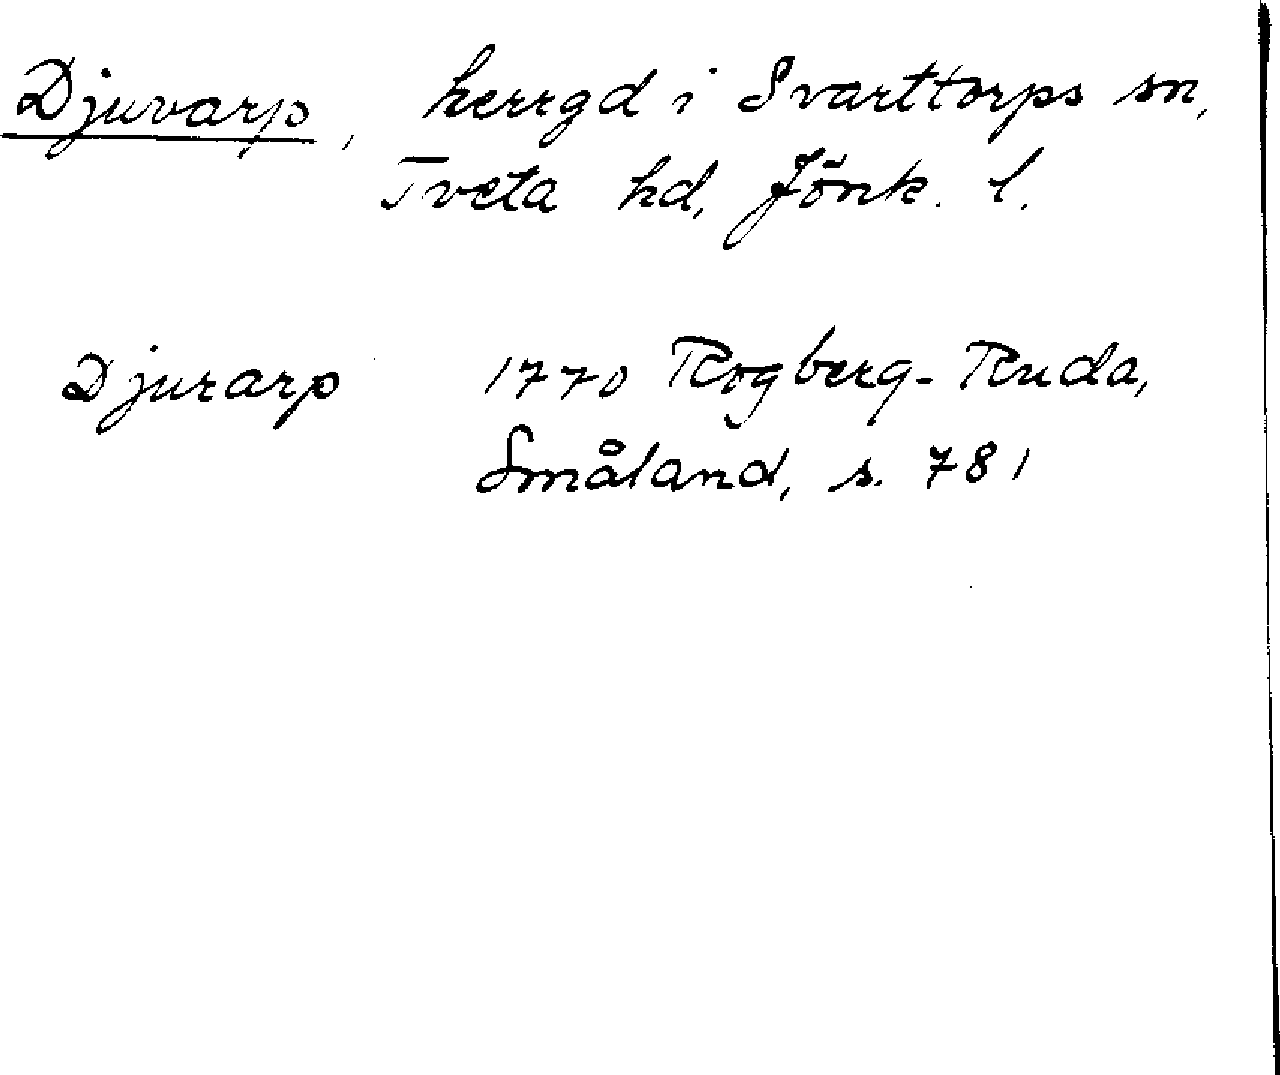 Djuvarp, herrgd i Svarttorps sn,
Tveta hd, Jönk. l.
Djurarp 1770 Rogberg-Ruda,
Småland, s. 781